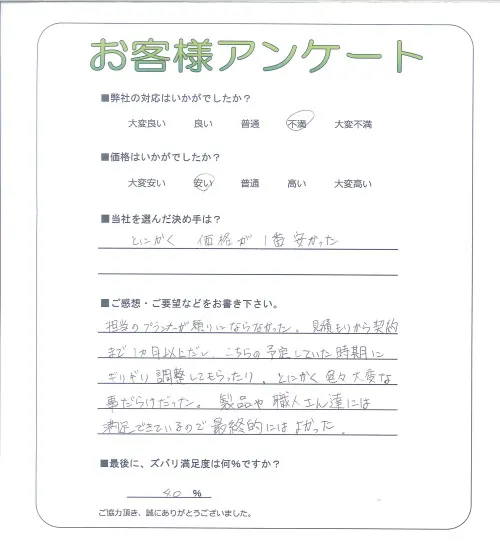 お客様アンケート
■弊社の対応はいかがでしたか？
大変良い 良い 普通 不満 大変不満
■価格はいかがでしたか？
大変安い 安い 普通 高い 大変高い
■当社を選んだ決め手は？
とにかく 価格が 1番 安かった
■ご感想・ご要望などをお書き下さい。
担当のプランナーが頼りにならなかった。見積もりから契約
まで1カ月以上だし、こちらの予定していた時期に
ギリギリ調整してもらったり、とにかく色々大変な
事だらけだった。製品や職人さん達には
満足できているので最終的にはよかった。
■最後に、ズバリ満足度は何％ですか？
％
ご協力頂き、誠にありがとうございました。